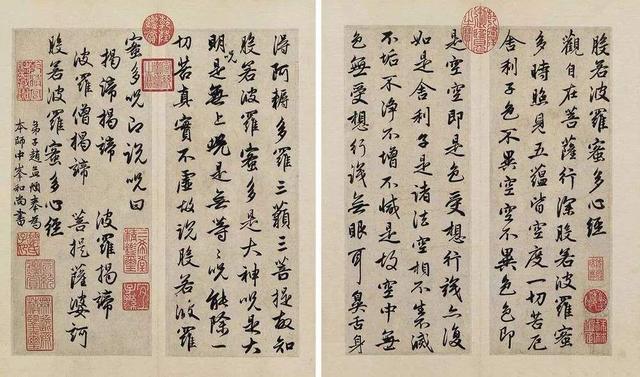 般若波羅蜜多心經
觀自在菩薩行深般若波羅蜜
多時照見五蘊皆空度一切苦厄
舍利子色不異空空不異色色即
是空空即是色受想行識亦復
如是舍利子是諸法空相不生不滅
不垢不淨不增不減是故空中無
色無受想行識無眼耳鼻舌身
得阿耨多羅三藐三菩提故知
般若波羅蜜多是大神呪是大
明呪是無上呪是無等等呪能除一
切苦真實不虛故說般若波羅
蜜多呪即說呪曰
揭諦揭諦 波羅揭諦
波羅僧揭諦 菩提薩婆訶
般若波羅蜜多心經
弟子趙孟頫奉為
本師中峯和尚書